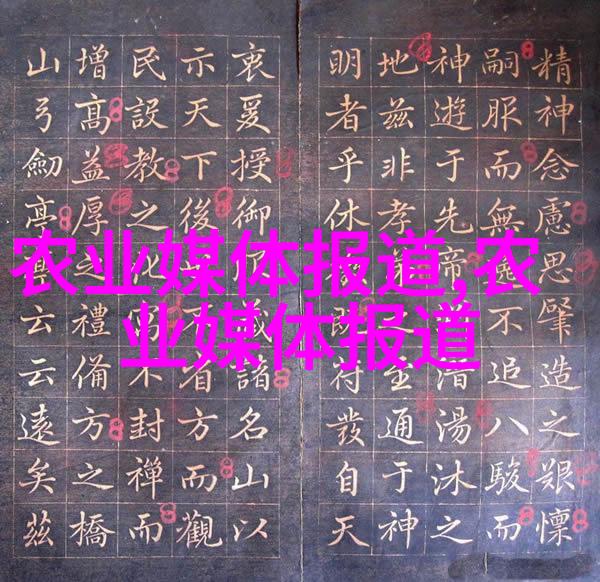 农业媒体报道,农
业媒体报道
精神念慮思肇造之艱懍
嗣服而無不追八駿而
神遊于先帝湯沐之
地茲非孝至通于神
明者乎休符發自天
衷爰授御諸名山以
示天下後省方而觀
民設教之不封禪而
增高益厚之禮備方之橋
山弓劔亭云云遠矣茲